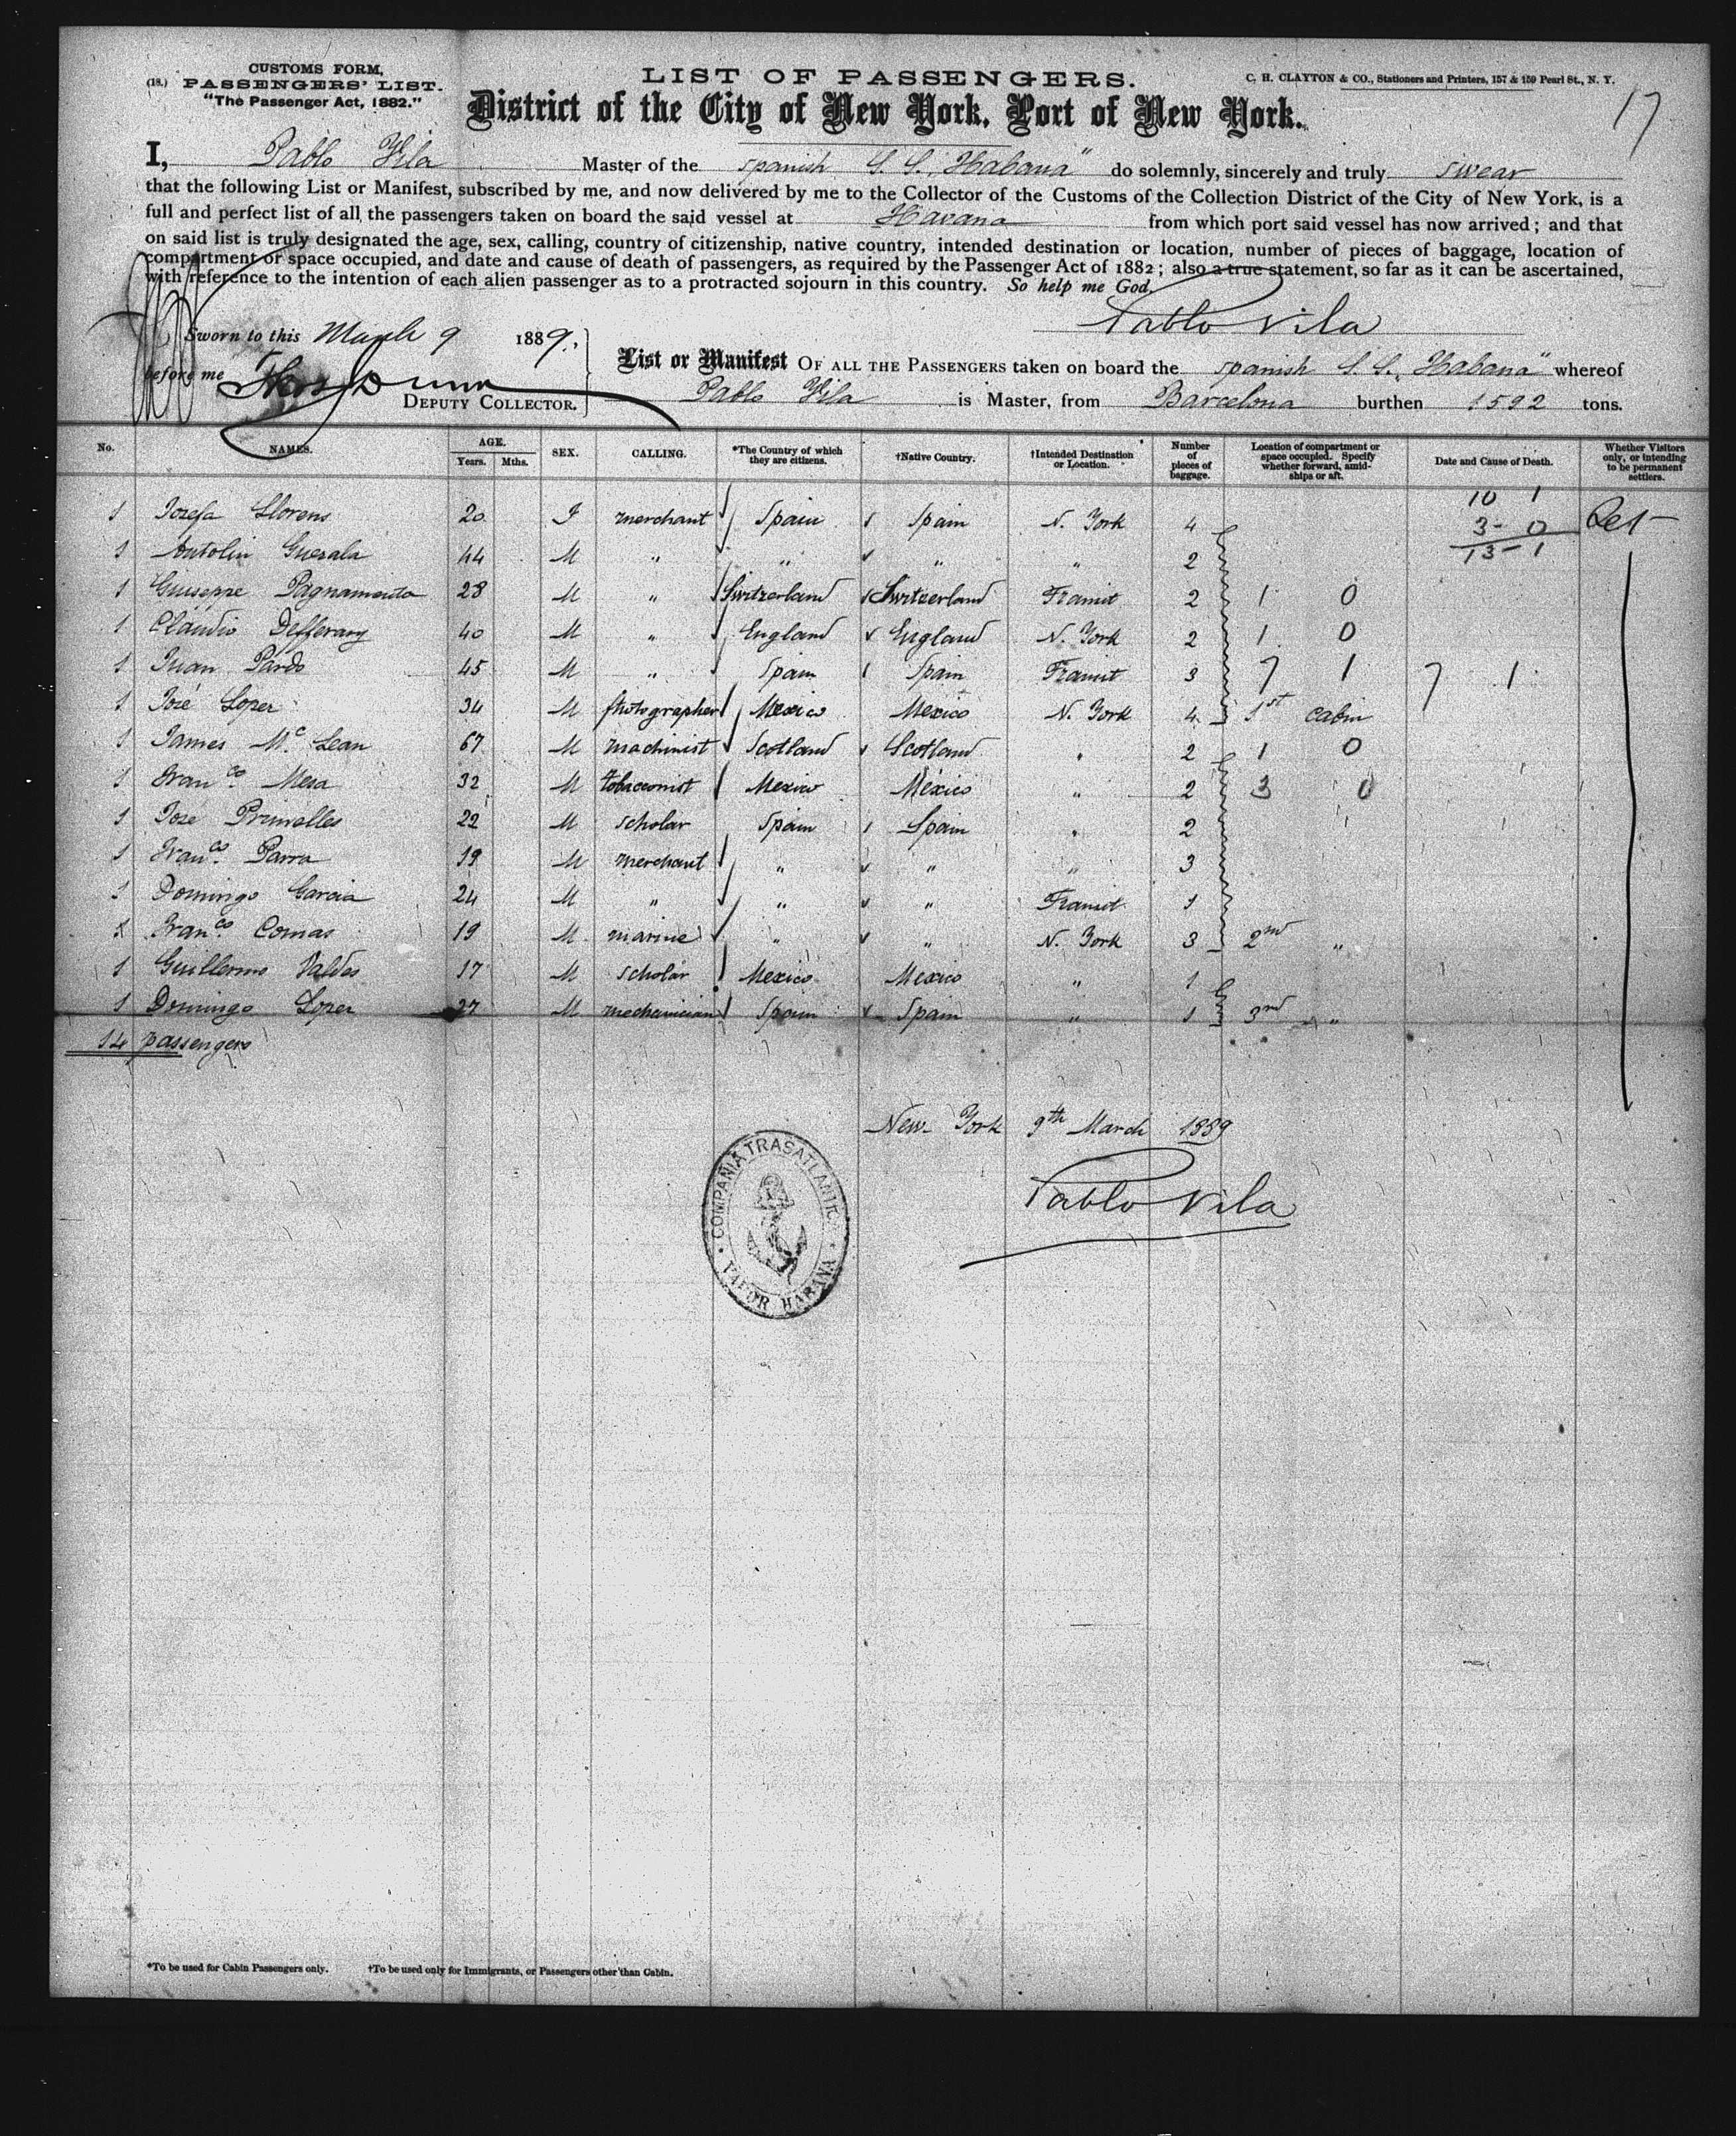 CUSTOMS FORM,
(18.) PASSENGERS' LIST.
"The Passenger Act, 1882."
LIST OF PASSENGERS.
C. H. CLAYTON & CO., Stationers and Printers, 157 & 159 Pearl St., N. Y.
17
District of the City of New York, Port of New York.
I, Pablo Vila Master of the spanish S. S. "Habana" do solemnly, sincerely and truly swear
that the following List or Manifest, subscribed by me, and now delivered by me to the Collector of the Customs of the Collection District of the City of New York, is a
full and perfect list of all the passengers taken on board the said vessel at Havana from which port said vessel has now arrived; and that
on said list is truly designated the age, sex, calling, country of citizenship, native country, intended destination or location, number of pieces of baggage, location of
compartment or space occupied, and date and cause of death of passengers, as required by the Passenger Act of 1882; also a true statement, so far as it can be ascertained,
with reference to the intention of each alien passenger as to a protracted sojourn in this country. So help me God.
Pablo Vila
Sworn to this March 9 1889.
before me
DEPUTY COLLECTOR.
List or Manifest OF ALL THE PASSENGERS taken on board the spanish S. S. "Habana" whereof
Pablo Vila is Master, from Barcelona burthen 1592 tons.
No. NAMES. AGE. Years. Mths. SEX. CALLING. *The Country of which they are citizens. †Native Country. †Intended Destination or Location. Number of pieces of baggage. Location of compartment or space occupied. Specify whether forward, amidships or aft. Date and Cause of Death. Whether Visitors only, or intending to be permanent settlers.
10 1
3 - 0
13 - 1
1 Josefa Llorens 20 F merchant Spain Spain N. York 4 Ret
1 Antolin Guerala 44 M " " " " 2
1 Guiseppe Pagnamenta 28 M " Switzerland Switzerland Transit 2 1 0
1 Claudio Defferary 40 M " England England N. York 2 1 0
1 Juan Pardo 45 M " Spain Spain Transit 3 7 1 7 1
1 José Lopez 34 M photographer Mexico Mexico N. York 4 1st cabin
1 James Mc Lean 67 M machinist Scotland Scotland " 2 1 0
1 Franco. Mesa 32 M tobacconist Mexico Mexico " 2 3 0
1 José Primelles 22 M scholar Spain Spain " 2
1 Franco. Parra 19 M merchant " " " 3
1 Domingo Garcia 24 M " " " Transit 1
1 Franco. Comas 19 M marine " " N. York 3 2nd "
1 Guillermo Valdes 17 M scholar Mexico Mexico " 1
1 Domingo Lopez 27 M mechanician Spain Spain " 1 3rd "
14 passengers
New York 9th March 1889
Pablo Vila
COMPAÑIA TRASATLANTICA
VAPOR HABANA
*To be used for Cabin Passengers only. †To be used only for Immigrants, or Passengers other than Cabin.